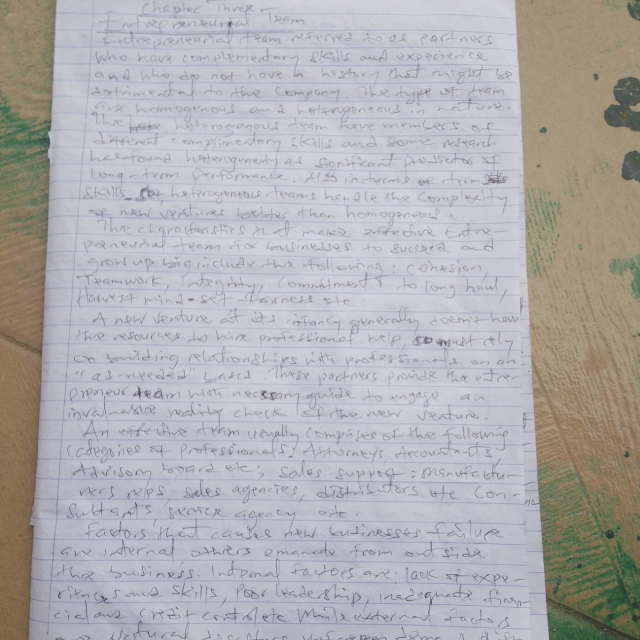 Chapter Three
Entrepreneurial Team
Entrepreneurial team referred to as partners
who have complementary skills and experience
and who do not have a history that might be
detrimental to the company. The type of team
are homogenous and heterogeneous in nature
The heterogeneous team have members of
different complimentary skills and some research
has found heterogeneity as significant predictor of
long-term performance
skills. So heterogenous teams handle the complexity
of new ventures better than homogenous.
The charateristics that makes effective entre
preneurial team for businesses to succeed and
grow up big include the following: cohesion,
Teamwork, Integrity, commitment to long haul,
Harvest mind-set fairness etc
A new venture at its infancy generally doesn't have
the resources to hire professional help, so must rely
on building relationships with professionals on an
"as needed" basis. These partners provide the entre-
preneur team with necessary guide to engage an
invaluable reality check of the new venture
An effective team usually comprises of the following
categories of Professionals; Attorneys, Accountants,
Advisory board etc; sales support; manufactu-
rers reps, sales agencies, distributors etc Con-
sultants, service agency etc.
Factors that causes new businesses failure
are internal others emanate from outside
the business. Internal factors are: lack of expe-
riences and skills, Poor leadership, inadequate finan
cial and credit control etc While external factors
are Natural disasters